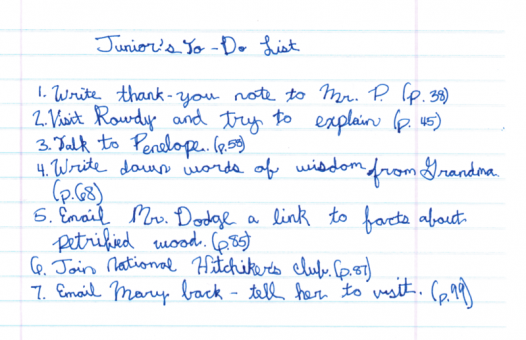 Junior's To-Do List
1. Write thank-you note to Mr. P. (p. 38)
2. Visit Rowdy and try to explain (p. 45)
3. Talk to Penelope. (p.59)
4. Write down words of wisdom from Grandma
(p.68)
5. Email Mr. Dodge a link to facts about
petrified wood. (p.85)
6. Join National Hitchikers club. (p.87)
7. Email Mary back - tell her to visit. (p.99)